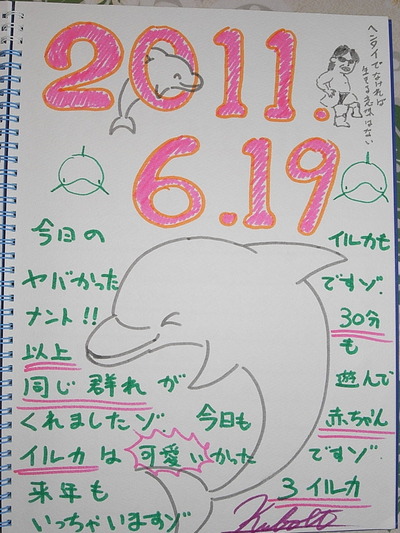 2011.
6.19
ヘンタイでなければ
生きてる意味はない
今日の イルカも
ヤバかった ですゾ.
ナント!! 30分
以上 も
同じ群れが 遊んで
くれましたゾ. 今日も 赤ちゃん
イルカは 可愛いかった ですゾ.
来年も 3イルカ
いっちゃいますゾ
Kubota